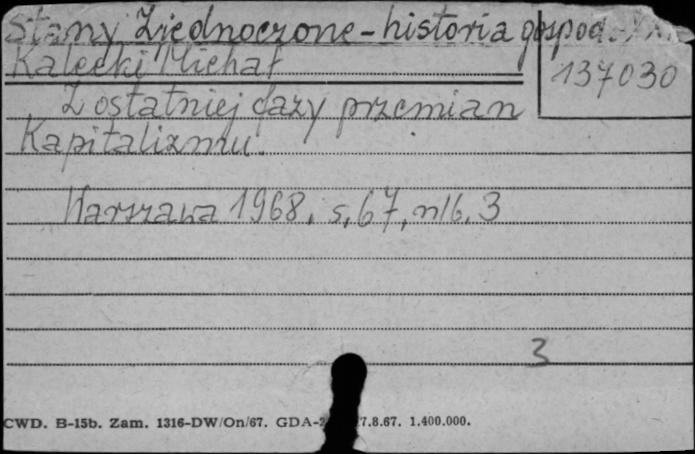 Stany Zjednoczone - historia gospod.
Kalecki Michał
137030
Z ostatniej fazy przemian
Kapitalizmu.
Warszawa 1968. s. 67, nlb. 3
3
CWD. B-15b. Zam. 1316-DW/On/67. GDA- 7.8.67. 1.400.000.